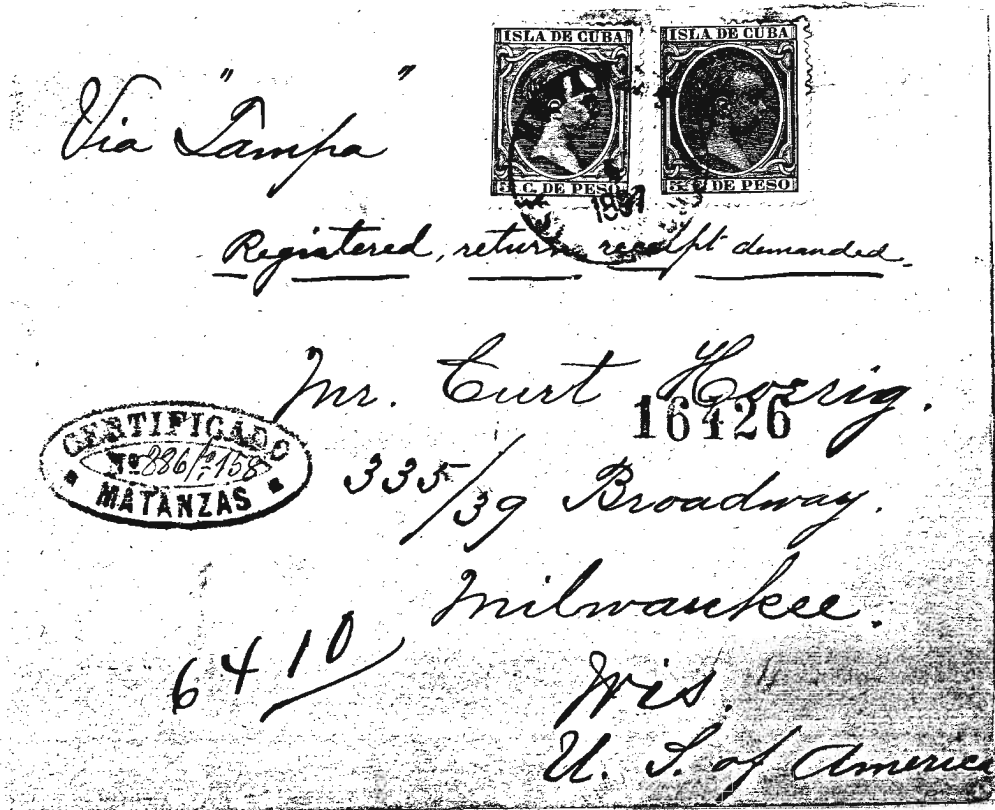 ISLA DE CUBA ISLA DE CUBA
5 C. DE PESO 5 C. DE PESO
1897
Via "Tampa"
Registered, return receipt demanded.
Mr. Curt Hoerig.
16426
CERTIFICADO
Nº 886/ 158
MATANZAS
335/39 Broadway.
Milwaukee.
6410
Wis.
U. S. of America